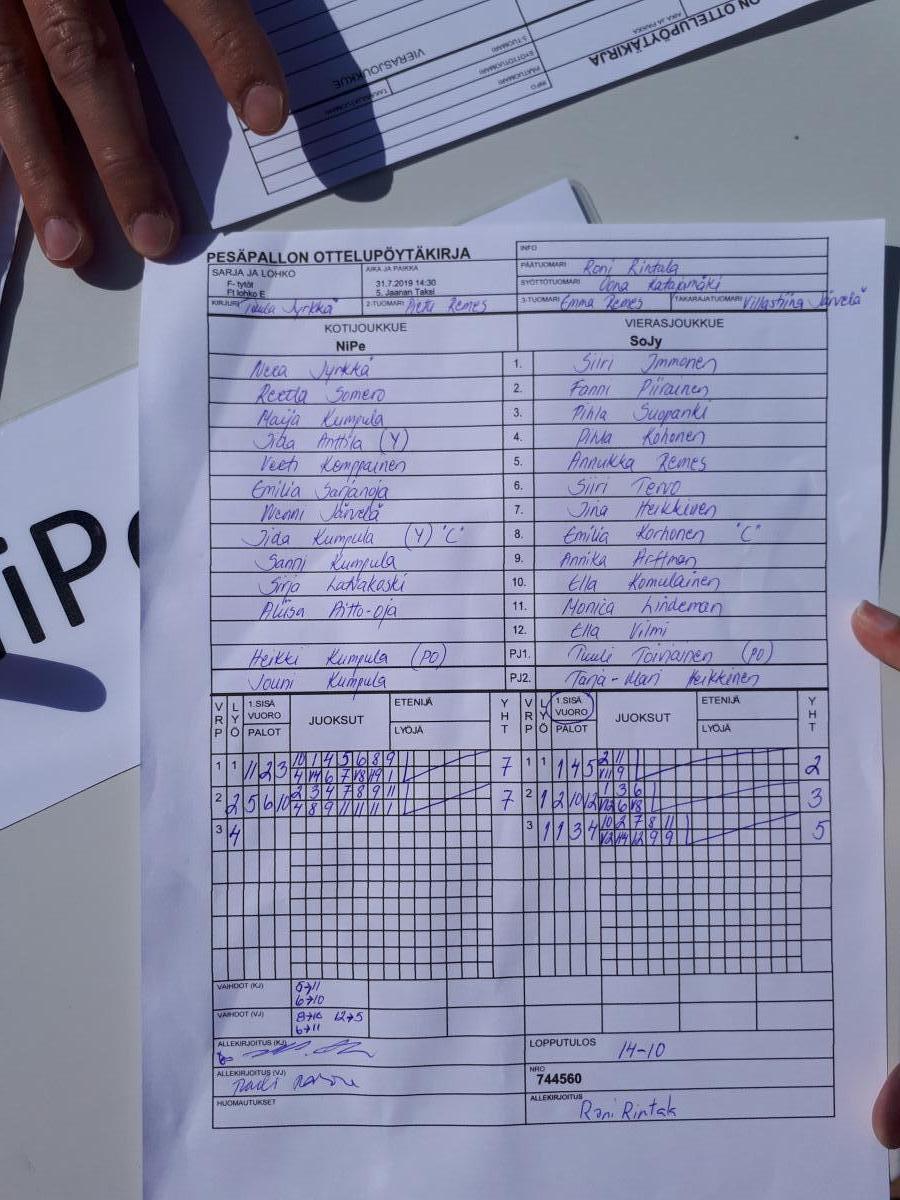 VIERASJOUKKUE
3-TUOMARI
SYÖTTÖTUOMARI
PÄÄTUOMARI
INFO
TAKARAJATUOMARI
ON OTTELUPÖYTÄKIRJA
AIKA JA PAIKKA
iPe
PESÄPALLON OTTELUPÖYTÄKIRJA
INFO
SARJA JA LOHKO
F- tytöt
Ft lohko E
AIKA JA PAIKKA
31.7.2019 14:30
5. Jaanan Taksi
PÄÄTUOMARI Roni Rintala
SYÖTTÖTUOMARI Oona Katajamäki
KIRJURI Tuula Jyrkkä 2-TUOMARI Remes 3-TUOMARI Emma Remes TAKARAJATUOMARI Villastiina Järvelä
KOTIJOUKKUE VIERASJOUKKUE
NiPe SoJy
Neea Jyrkkä 1. Siiri Immonen
Reetta Somero 2. Fanni Piirainen
Maija Kumpula 3. Pihla Suopanki
Iida Anttila (Y) 4. Pihla Kohonen
Veeti Komppainen 5. Annukka Remes
Emilia Sarjanoja 6. Siiri Tervo
Wenni Järvelä 7. Iina Heikkinen
Iida Kumpula (Y) "C" 8. Emilia Korhonen "C"
Sanni Kumpula 9. Annika Arffman
Sirja Latvakoski 10. Ella Komulainen
Aliisa Pitto-oja 11. Monica Lindeman
12. Ella Vilmi
Heikki Kumpula (PO) PJ1. Tuuli Toiviainen (PO)
Jouni Kumpula PJ2. Tarja-Mari Heikkinen
VRP LYÖ 1.SISÄ VUORO PALOT JUOKSUT ETENIJÄ LYÖJÄ YHT VRP LYÖ 1.SISÄ VUORO PALOT JUOKSUT ETENIJÄ LYÖJÄ YHT
1 1 11 2 3 10 1 4 5 6 8 9 7 1 1 1 4 5 2 11 2
2 2 5 6 10 2 3 4 7 8 9 11 7 2 1 2 10 12 1 3 6 3
4 8 9 11 11 11 1
3 4 3 1 1 3 4 10 2 7 8 11 5
VAIHDOT (KJ) 5→11
6→10
VAIHDOT (VJ) 12→5
6→11
ALLEKIRJOITUS (KJ) LOPPUTULOS 14-10
ALLEKIRJOITUS (VJ) NRO
744560
HUOMAUTUKSET ALLEKIRJOITUS
Roni Rintala